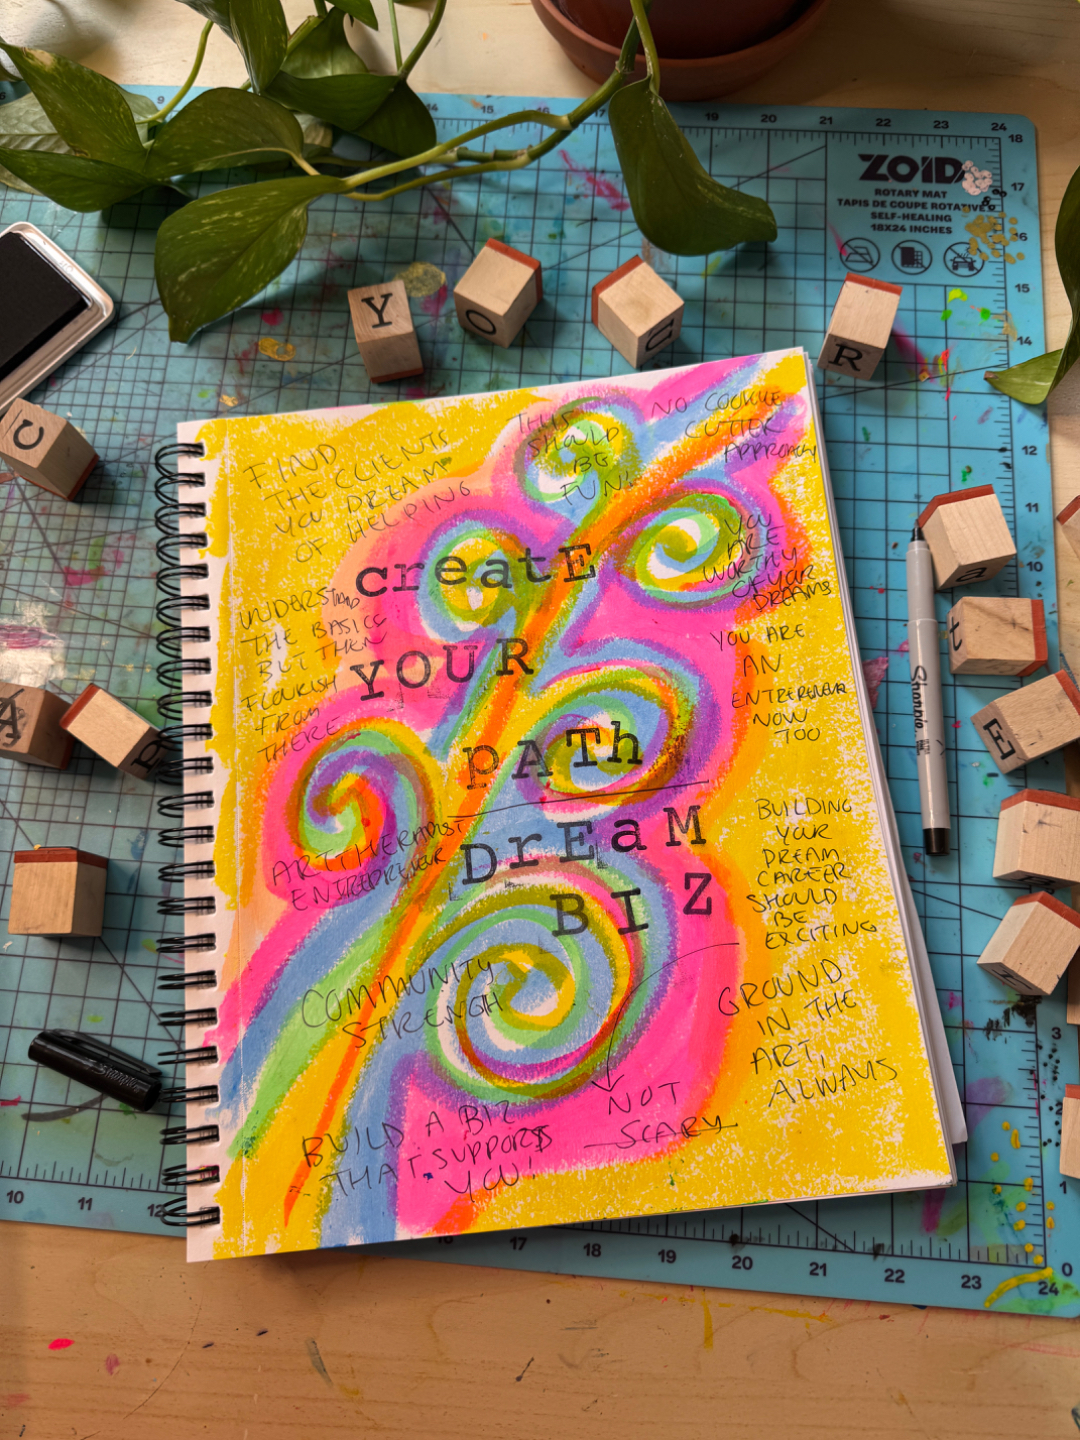 14
19
20
21
22
23
24
18
17
16
15
14
ZOID
ROTARY MAT
TAPIS DE COUPE ROTATIVE
SELF-HEALING
18X24 INCHES
Y
O
u
R
C
FIND
THE CLIENTS
YOU DREAM
OF HELPING
THIS
SHOULD
BE
FUN!
NO COOKIE
CUTTER
APPROACH
YOU
ARE
WORTHY
OF YOUR
DREAMS
creatE
YOUR
pATh
DrEaM
BIZ
UNDERSTAND
THE BASICS
BUT THEN
FLOURISH
FROM
THERE
YOU ARE
AN
ENTREPRENEUR
NOW
TOO
ART THERAPIST
ENTREPRENEUR
BUILDING
YOUR
DREAM
CAREER
SHOULD
BE
EXCITING
COMMUNITY
STRENGTH
GROUND
IN THE
ART,
ALWAYS
BUILD A BIZ
THAT SUPPORTS
YOU!
NOT
SCARY
a
t
E
A
Sharpie
3
0
10
11
12
16
17
18
19
20
21
22
23
24